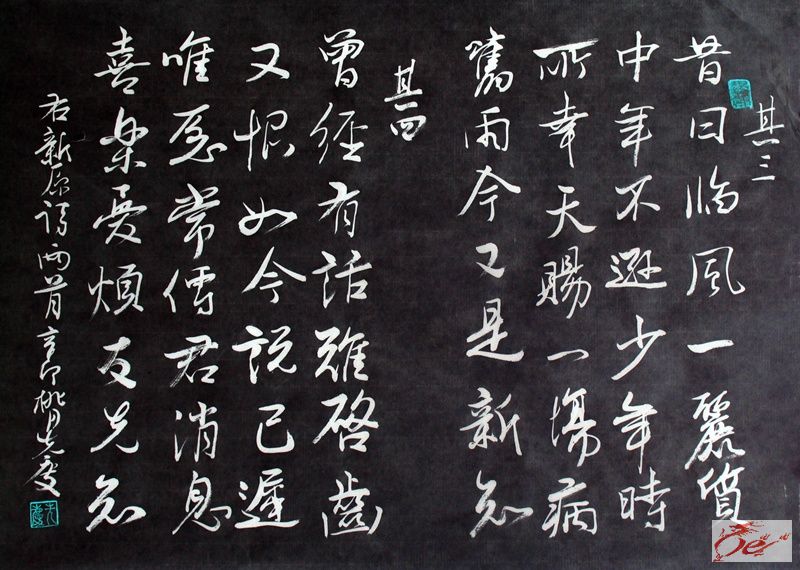 其三
昔日临風一麗質
中年不遜少年時
所幸天賜一場病
舊雨今又是新知
其四
曾經有話難啓齒
又恨如今說已遲
唯愿常傳君消息
喜樂憂煩友先知
右新原詩兩首